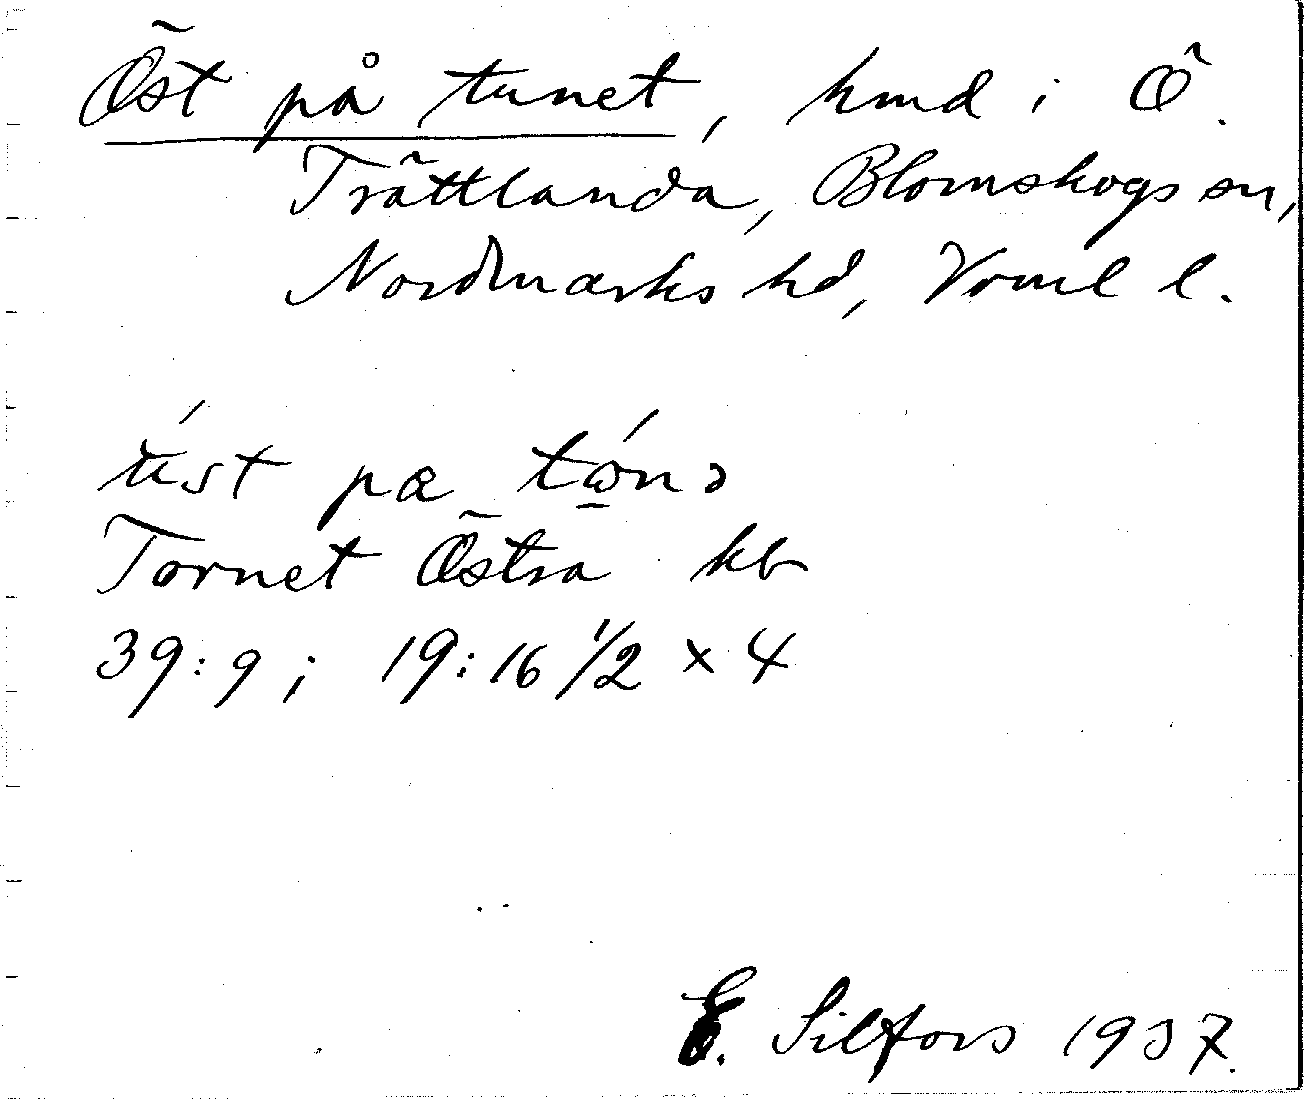 Öst på tunet, hmd i Ö.
Trättlanda, Blomskogs sn,
Nordmarks hd, Vrml l.
pæ
Tornet Östra kb
39:9; 19:16 1/2 x 4
E. Silfors 1937.